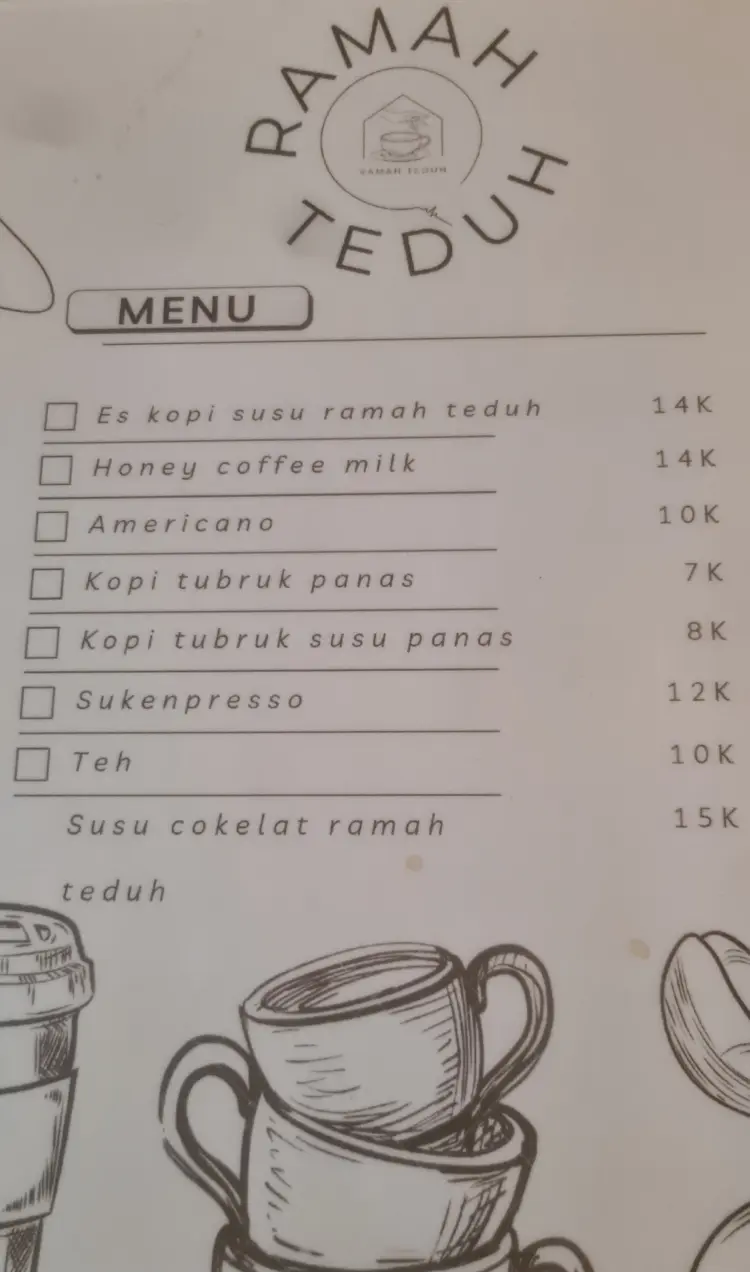 RAMAH
RAMAH TEDUH
TEDUH
MENU
Es kopi susu ramah teduh 14K
Honey coffee milk 14K
Americano 10K
Kopi tubruk panas 7K
Kopi tubruk susu panas 8K
Sukenpresso 12K
Teh 10K
Susu cokelat ramah 15K
teduh